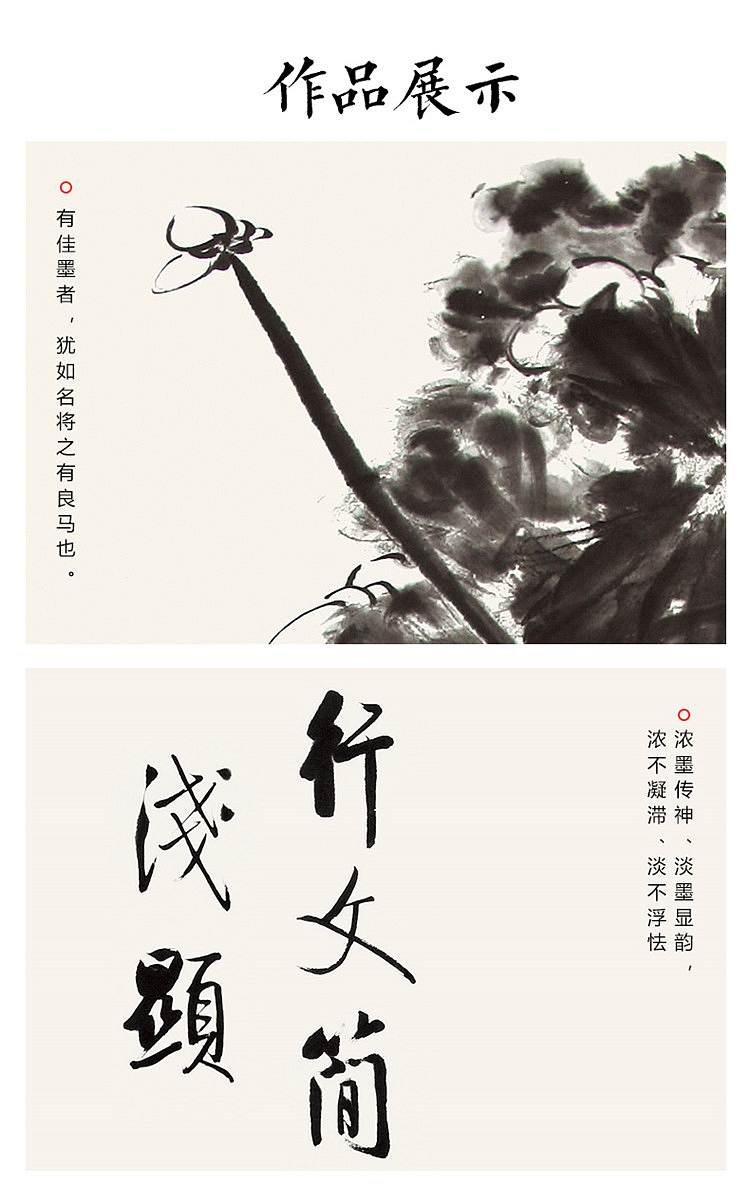 作品展示
有佳墨者，犹如名将之有良马也。
浓墨传神、淡墨显韵，
浓不凝滞、淡不浮怯
行文简
浅顯